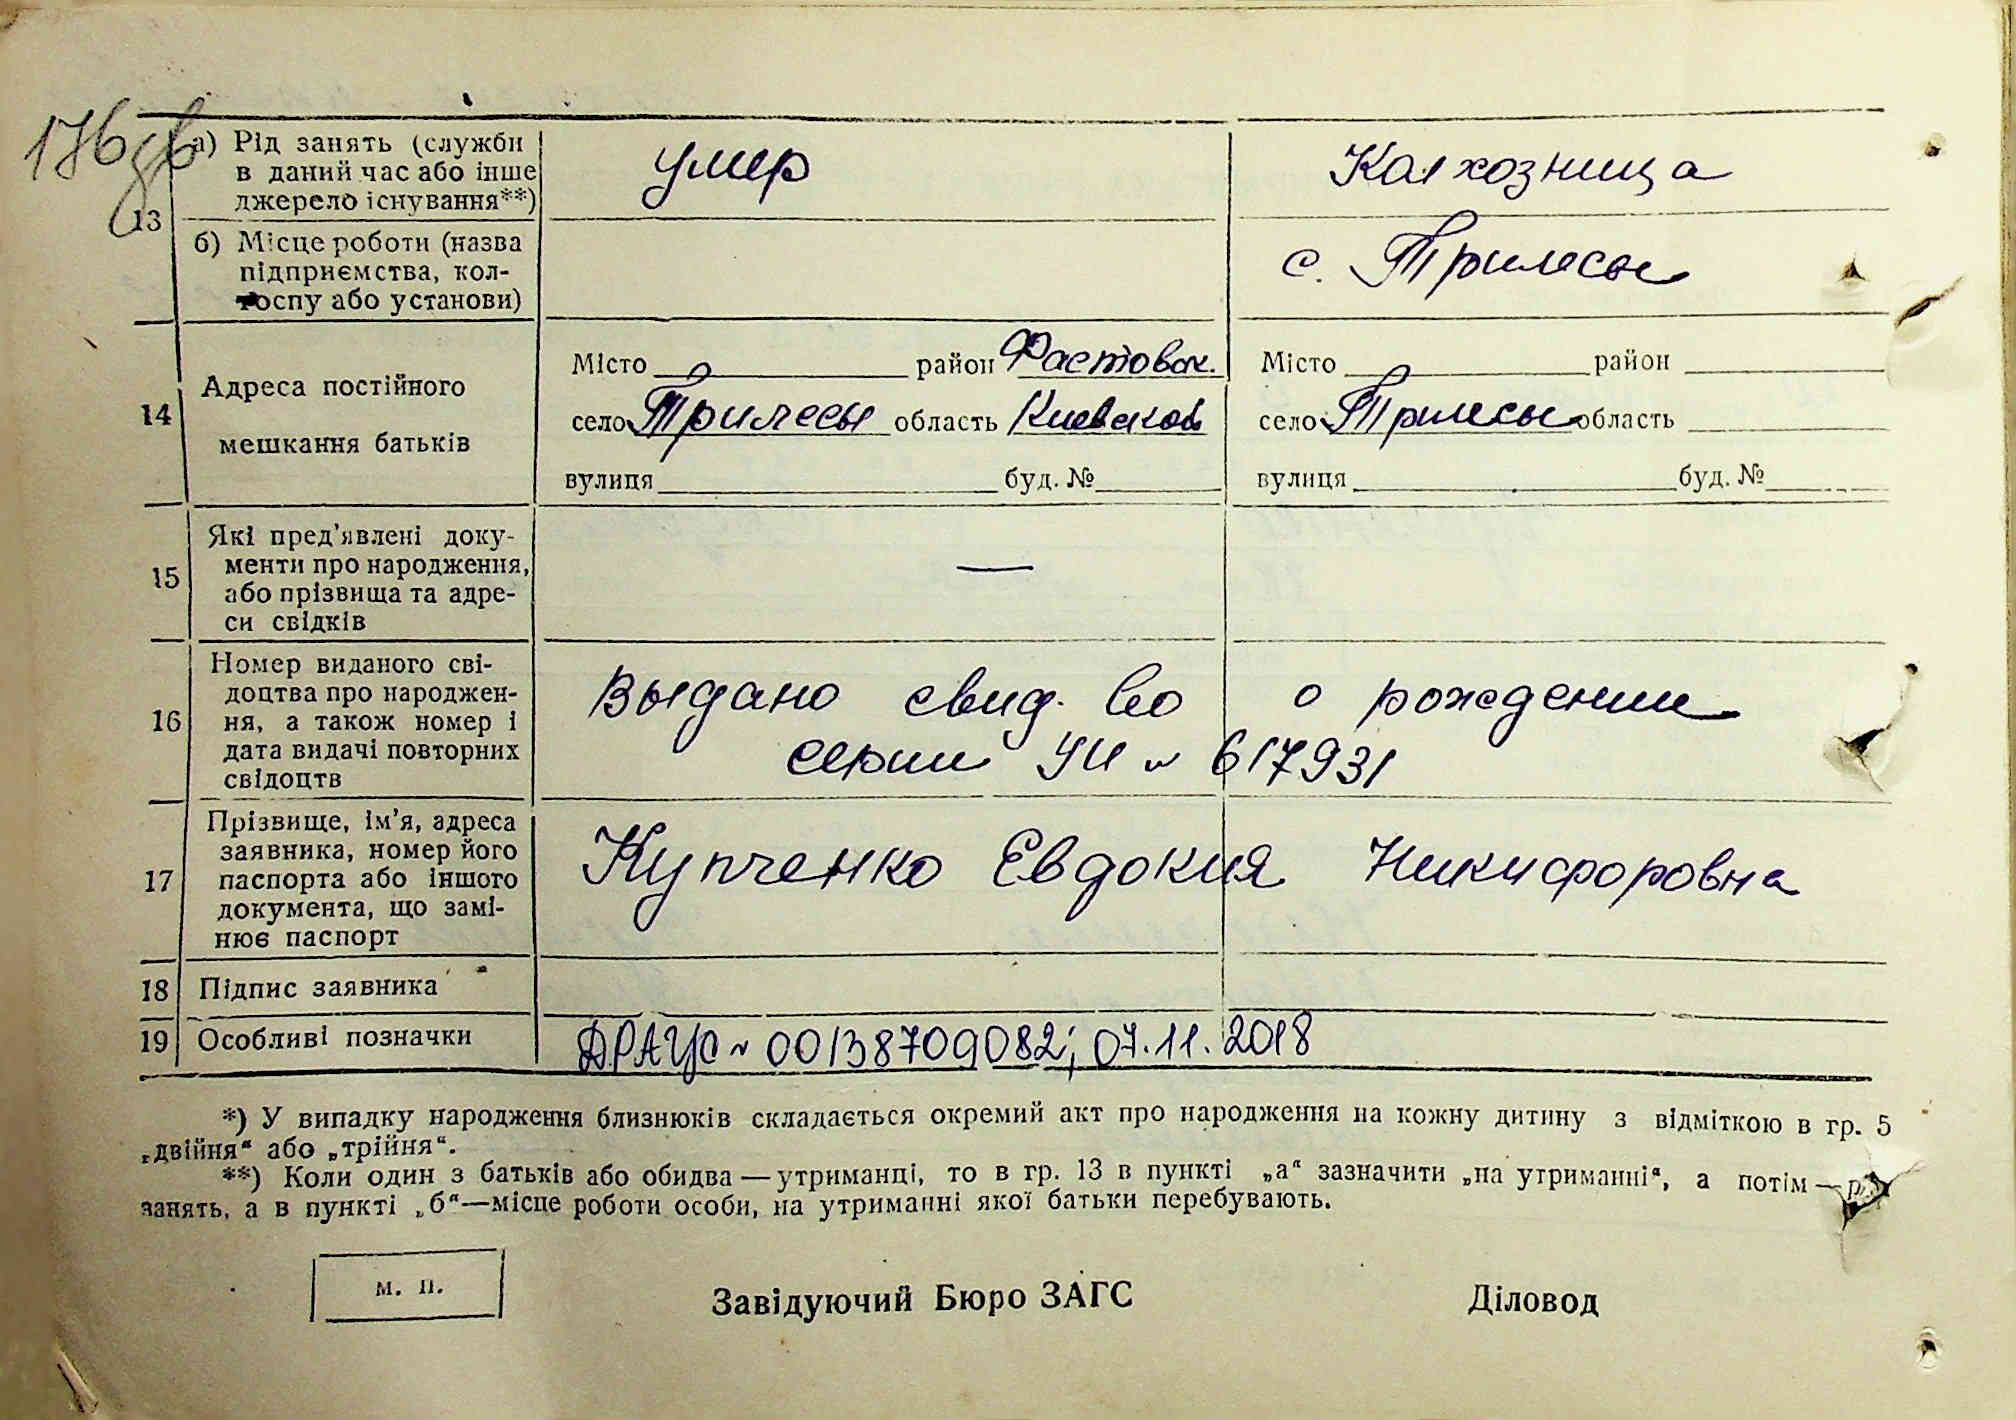 176зв
13
а) Рід занять (служби
в даний час або інше
джерело існування**)
умер
Колхозница
б) Місце роботи (назва
підприємства, кол-
госпу або установи)
с. Трилесы
14
Адреса постійного
мешкання батьків
Місто район Фастовск.
село Трилесы область Киевской
вулиця буд. №
Місто район
село Трилесы область
вулиця буд. №
15
Які пред'явлені доку-
менти про народження,
або прізвища та адре-
си свідків
—
16
Номер виданого сві-
доцтва про народжен-
ня, а також номер і
дата видачі повторних
свідоцтв
Выдано свид-во о рождении
серии УИ № 617931
17
Прізвище, ім'я, адреса
заявника, номер його
паспорта або іншого
документа, що замі-
нює паспорт
Купченко Евдокия Никифоровна
18 Підпис заявника
19 Особливі позначки
ДРАЦС № 00138709082; 07.11.2018
*) У випадку народження близнюків складається окремий акт про народження на кожну дитину з відміткою в гр. 5
„двійня“ або „трійня“.
**) Коли один з батьків або обидва — утриманці, то в гр. 13 в пункті „а“ зазначити „на утриманні“, а потім —
занять, а в пункті „б“—місце роботи особи, на утриманні якої батьки перебувають.
м. п.
Завідуючий Бюро ЗАГС
Діловод